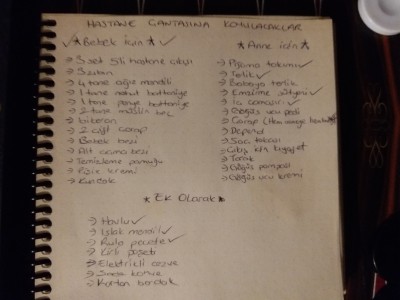 HASTANE ÇANTASINA KOYULACAKLAR
✓ ★ Bebek için ★ ✓
→ 3 set 5li hastane çıkışı
→ 3 zıbın
→ 4 tane ağız mendili
→ 1 tane battaniye
→ 1 tane penye battaniye
→ 2 tane müslin bez
→ biberon
→ 2 çift çorap
→ Bebek bezi
→ Alt açma bezi
→ Temizleme pamuğu
→ Pişik kremi
→ Kundak
★ Anne için ★
→ Pijama takımı ✓
→ Terlik ✓
→ Babaya terlik
→ Emzirme sütyeni ✓
→ İç çamaşırı ✓
→ Göğüs ucu pedi
→ Çorap
→ Depend
→ Saç tokası
→ Çıkış için kıyafet
→ Tarak
→ Göğüs pompası
→ Göğüs ucu kremi
★ Ek Olarak ★
→ Havlu ✓
→ Islak mendil ✓
→ Rulo peçete ✓
→ Kirli poşeti
→ Elektrikli cezve
→ kahve
→ Karton bardak